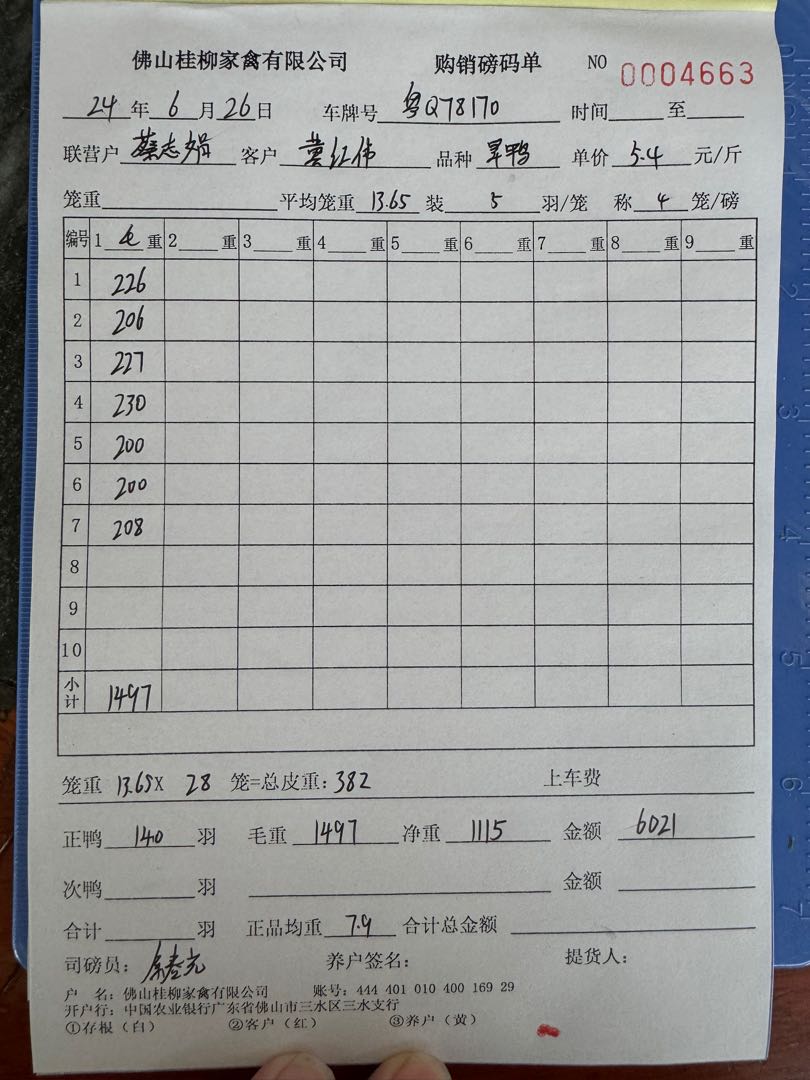 佛山桂柳家禽有限公司 购销磅码单 NO 0004663
24 年 6 月 26 日 车牌号 粤Q78170 时间 至
联营户 蔡志娟 客户 红伟 品种 旱鸭 单价 5.4 元/斤
笼重 平均笼重 13.65 装 5 羽/笼 称 4 笼/磅
编号 1 毛 重 2 重 3 重 4 重 5 重 6 重 7 重 8 重 9 重
1 226
2 206
3 227
4 230
5 200
6 200
7 208
8
9
10
小计 1497
笼重 13.65 X 28 笼=总皮重: 382 上车费
正鸭 140 羽 毛重 1497 净重 1115 金额 6021
次鸭 羽 金额
合计 羽 正品均重 7.9 合计总金额
司磅员: 养户签名: 提货人:
户 名: 佛山桂柳家禽有限公司 账号: 444 401 010 400 169 29
开户行: 中国农业银行广东省佛山市三水区三水支行
①存根(白) ②客户(红) ③养户(黄)